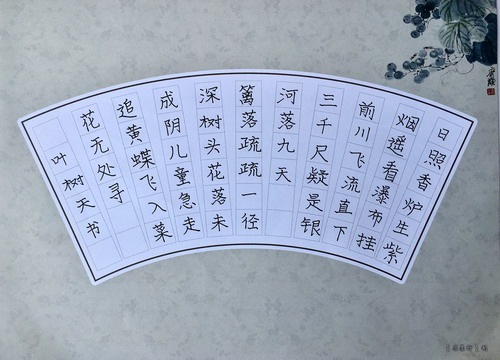 日照香炉生紫
烟遥看瀑布挂
前川飞流直下
三千尺疑是银
河落九天
篱落疏疏一径
深树头花落未
成阴儿童急走
追黄蝶飞入菜
花无处寻
叶树天书